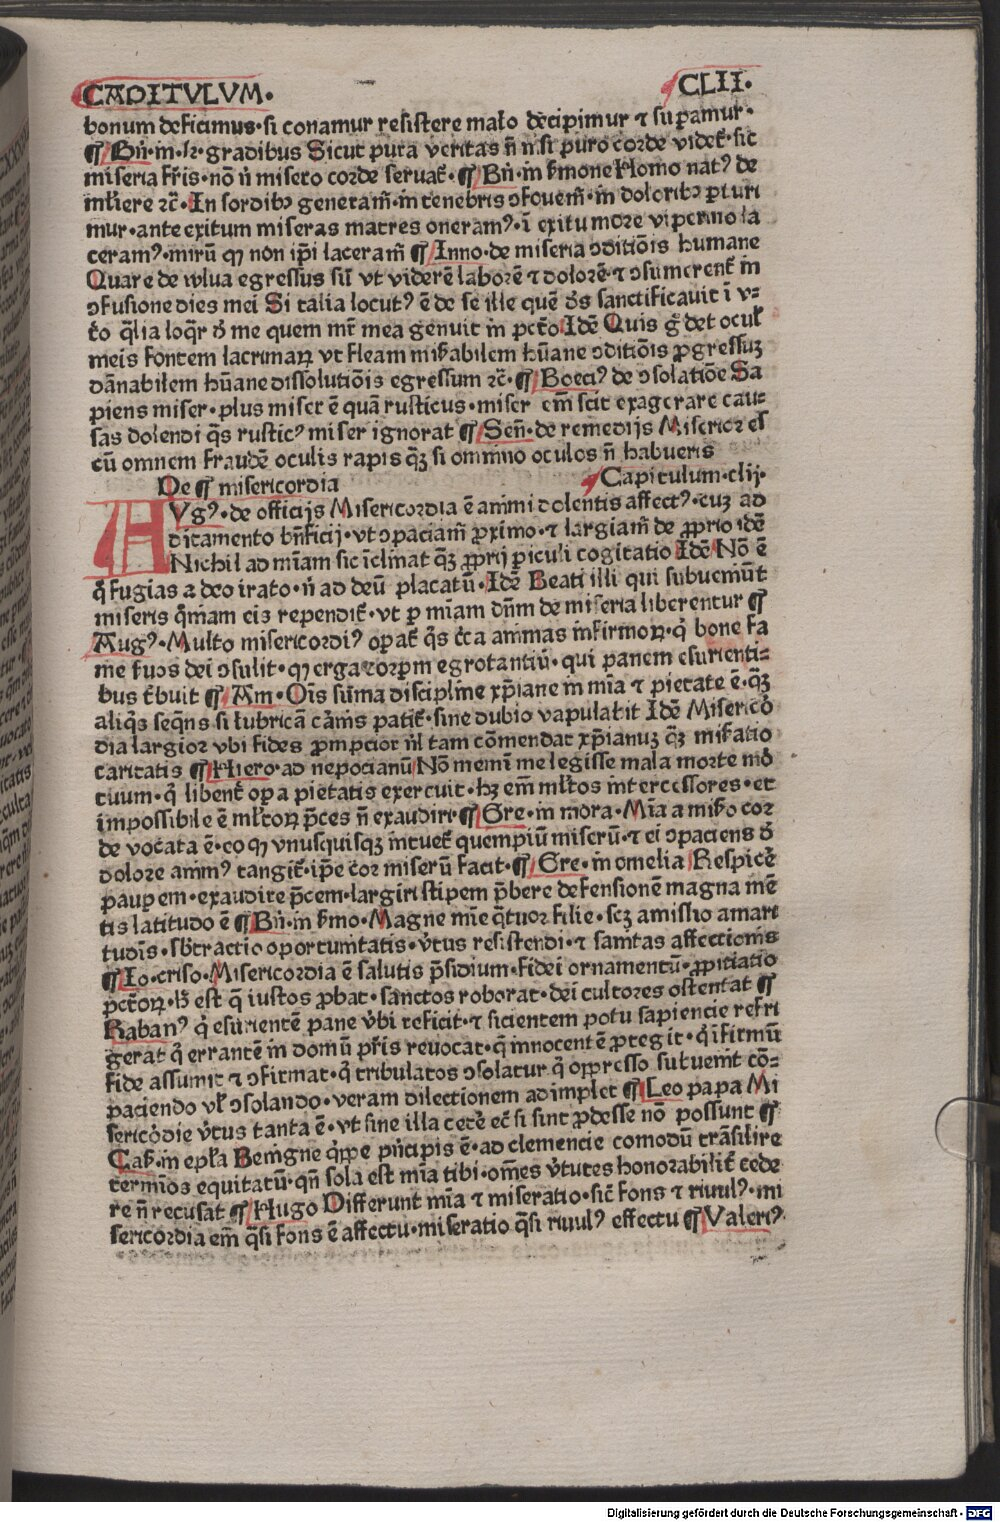 CAPITVLVM. CLII.
bonum deficimus·si conamur resistere malo decipimur ⁊ suꝑamur·
¶ Bñ·in·li·gradibus Sicut pura veritas ñ nisi puro corde videt᷑·sic
miseria fr̄is·nō ñ misero corde seruat᷑·¶ Bñ·in ẜmone Homo natꝰ de
muliere ⁊c̄·In sordibꝫ generam̄·in tenebris ↄfouem̄·in doloribꝫ ꝑturi
mur·ante exitum miseras matres oneramꝰ·ī exitu more viperino la
ceramꝰ·mirū ꝙ non ip̄i laceram̄ ¶ Inno·de miseria ↄditiōis humane
Quare de wlua egressus sū vt viderē laborē ⁊ dolorē·⁊ ↄsumerent᷑ in
ↄfusione dies mei Si talia locutꝰ ē de se ille quē d̄s sanctificauit ī v-
t̄o q̄lia loq̄r d̄ me quem mr̄ mea genuit in pct̄o Idē Quis g̊ det ocul̄
meis fontem lacrimaꝝ vt fleam mi̅abilem hūane ↄditiōis ꝓgressuꝫ
dānabilem hūane dissolutiōis egressum ⁊c̄·¶ Boeciꝰ de ↄsolatiōe Sa
piens miser·plus miser ē quā rusticus·miser em̄ scit exagerare cau-
sas dolendi q̄s rusticꝰ miser ignorat ¶ Señ·de remedijs Miserior es
cū omnem fraudē oculis rapis q̄ꝫ si omnino oculos ñ habueris
De ¶ misericordia Capitulum·clij·
AVgꝰ·de officijs Misericordia ē animi dolentis affectꝰ·cuꝫ ad
ditamento bn̄ficij·vt ↄpaciam̄ ꝓximo·⁊ largiam̄ de ꝓprio idē
Nichil ad miam sic īclinat q̄ꝫ ꝓprij ꝑiculi cogitatio Idē Nō ē
q̊ fugias a deo irato·ñ ad deū placatū·Idē Beati illi qui subueniūt
miseris q̄niam eis rependit᷑·vt ꝑ miam dn̄m de miseria liberentur ¶
Augꝰ·Multo misericordiꝰ opat᷑ q̄s c̄ca animas infirmoꝝ·q̄ bone fa
me fuos dei ↄsulit·ꝙ erga corpm egrotantiū·qui panem esurienti-
bus t̄buit ¶ Am·Oīs sūma discipline xp̄iane in mīa ⁊ pietate ē·q̄ꝫ
aliq̄s seq̄ns si lubricā carnis patit᷑·sine dubio vapulabit Idē Misericor
dia largior vbi fides ꝓmpcior nl̄ tam cōmendat xp̄ianuꝫ q̄ꝫ miẜatio
caritatis ¶ Hiero·ad nepocianū Nō memī me legisse mala morte mor
tuum·q̄ libent᷑ opa pietatis exercuit·hꝫ em̄ ml̄tos intercessores·et
impossibile ē ml̄toꝝ p̄ces ñ exaudiri ¶ Gre·in mora·Mīa a miẜo cor
de vocata ē·eo ꝙ vnusquisqꝫ intuet᷑ quempiū miserū·⁊ ei ↄpaciens d̄
dolore animꝰ tangit᷑·ip̄e cor miserū facit·¶ Gre·in omelia Respicē
paupem·exaudire p̄cem·largiri stipem p̄bere defensionē magna mē
tis latitudo ē ¶ Bñ·in ẜmo·Magne mīe q̄tuor filie·scꝫ amissio amari
tudīs·sb̄tractio oportunitatis·v̄tus resistendi·⁊ sanitas affectionis
¶ Io·criso·Misericordia ē salutis p̄sidium·fidei ornamentū·ꝓpitiatio
pct̄oꝝ·h̄ est q̄ iustos ꝓbat·sanctos roborat·dei cultores ostentat ¶
Rabanꝰ q̄ esurientē pane v̄bi reficit·⁊ sicientem potu sapiencie refri
gerat q̄ errantē in domū pr̄is reuocat·q̄ innocentē ꝓtegit·q̄ īfirmū
fide assumit ⁊ ↄfirmat·q̄ tribulatos ↄsolatur q̄ oppresso subuenit cō-
paciendo vl̄ ↄsolando·veram dilectionem adimplet ¶ Leo papa Mi
sericordie v̄tus tanta ē·vt sine illa cete̅ ec̄ si sint ꝓdesse nō possunt ¶
Cas̄·in epl̄a Benigne q̄ppe p̄ncipis ē·ad clemencie comodū trāsilire
terminos equitatū·qn̄ sola est mīa tibi·om̄es v̄tutes honorabilit᷑ cede
re ñ recusat ¶ Hugo Differunt mīa ⁊ miseratio·sic̄ fons ⁊ riuulꝰ·mi
sericordia em̄ q̄si fons ē affectu·miseratio q̄si riuulꝰ effectu ¶ Valeriꝰ
Digitalisierung gefördert durch die Deutsche Forschungsgemeinschaft - DFG